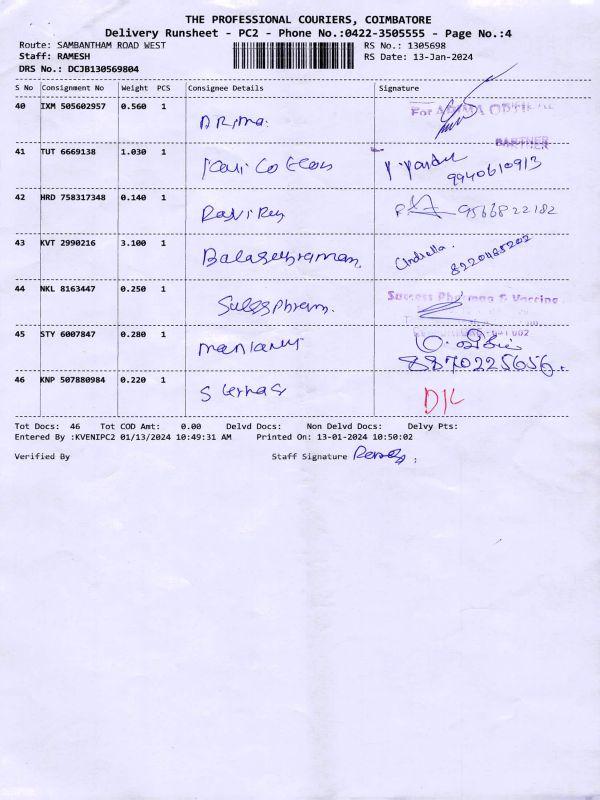 THE PROFESSIONAL COURIERS, COIMBATORE
Delivery Runsheet - PC2 - Phone No.:0422-3505555 - Page No.:4
Route: SAMBANTHAM ROAD WEST RS No.: 1305698
Staff: RAMESH RS Date: 13-Jan-2024
DRS No.: DCJB130569804
S No Consignment No Weight PCS Consignee Details Signature
40 IXM 505602957 0.560 1 For
PARTNER
41 TUT 6669138 1.030 1
9940610913
42 HRD 758317348 0.140 1 9566822182
43 KVT 2990216 3.100 1 Balasubraman
8220468202
44 NKL 8163447 0.250 1 Success Pharma & Vaccine
45 STY 6007847 0.280 1
8870225656
46 KNP 507880984 0.220 1 D/L
Tot Docs: 46 Tot COD Amt: 0.00 Delvd Docs: Non Delvd Docs: Delvy Pts:
Entered By :KVENIPC2 01/13/2024 10:49:31 AM Printed On: 13-01-2024 10:50:02
Verified By Staff Signature